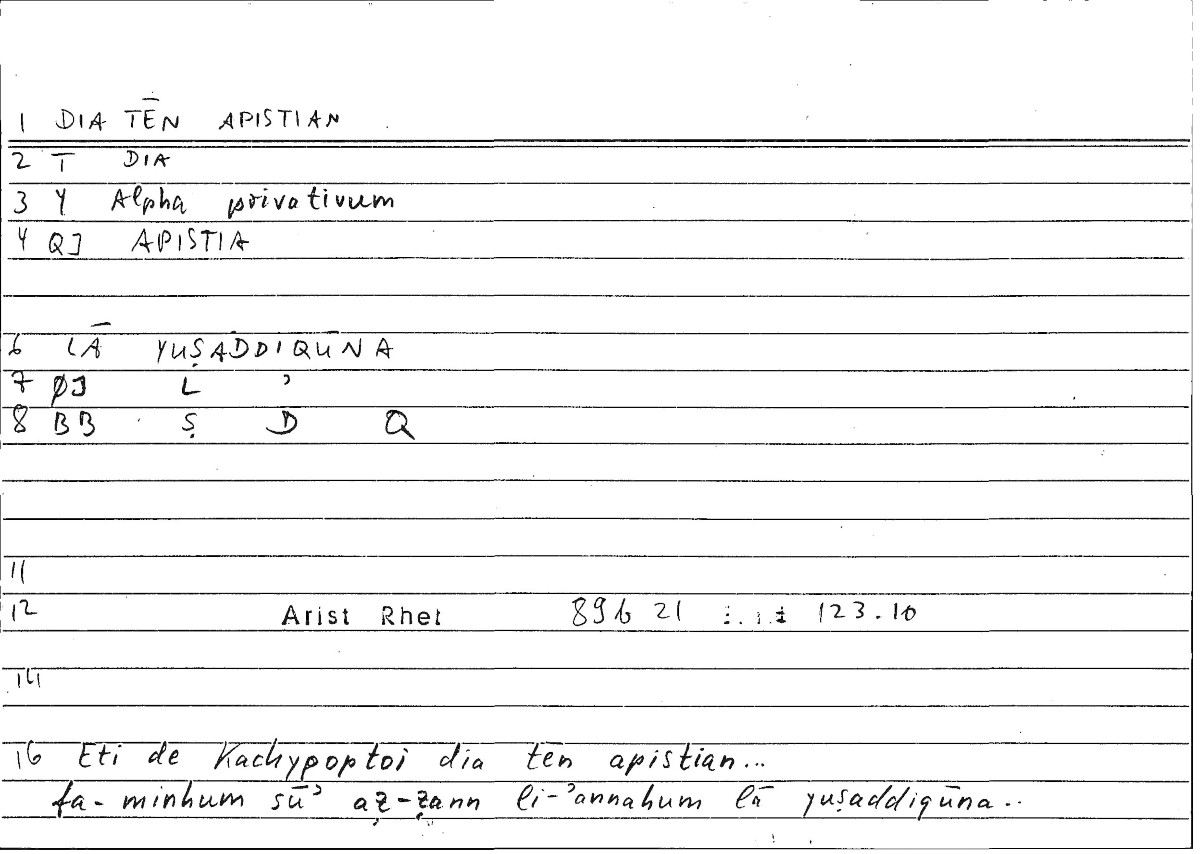 1 DIA TĒN APISTIAN
2 T DIA
3 Y Alpha privativum
4 QJ APISTIA
6 LĀ YUṢADDIQŪNA
7 ØJ L ʾ
8 BB Ṣ D Q
11
12 Arist Rhet 89b 21 123.10
14
16 Eti de Kachypoptoi dia ten apistian...
fa-minhum sūʾ aẓ-ẓann li-ʾannahum lā yuṣaddiqūna..